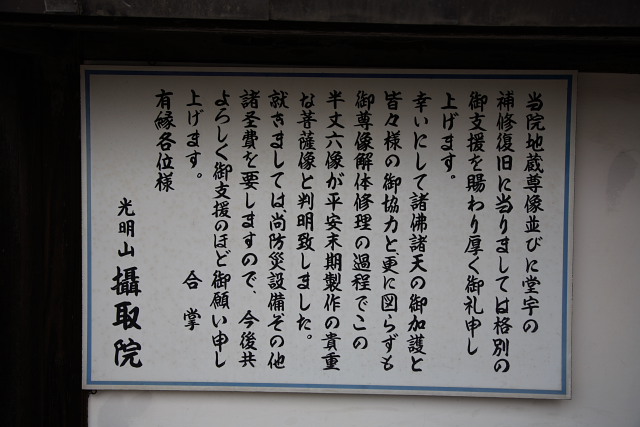 当院地蔵尊像並びに堂宇の
補修復旧に当りましては格別の
御支援を賜わり厚く御礼申し
上げます。
幸いにして諸佛諸天の御加護と
皆々様の御協力と更に図らずも
御尊像解体修理の過程でこの
半丈六像が平安末期製作の貴重
な菩薩像と判明致しました。
就きましては尚防災設備その他
諸圣費を要しますので、今後共
よろしく御支援のほど御願い申し
上げます。 合掌
有縁各位様
光明山 攝取院